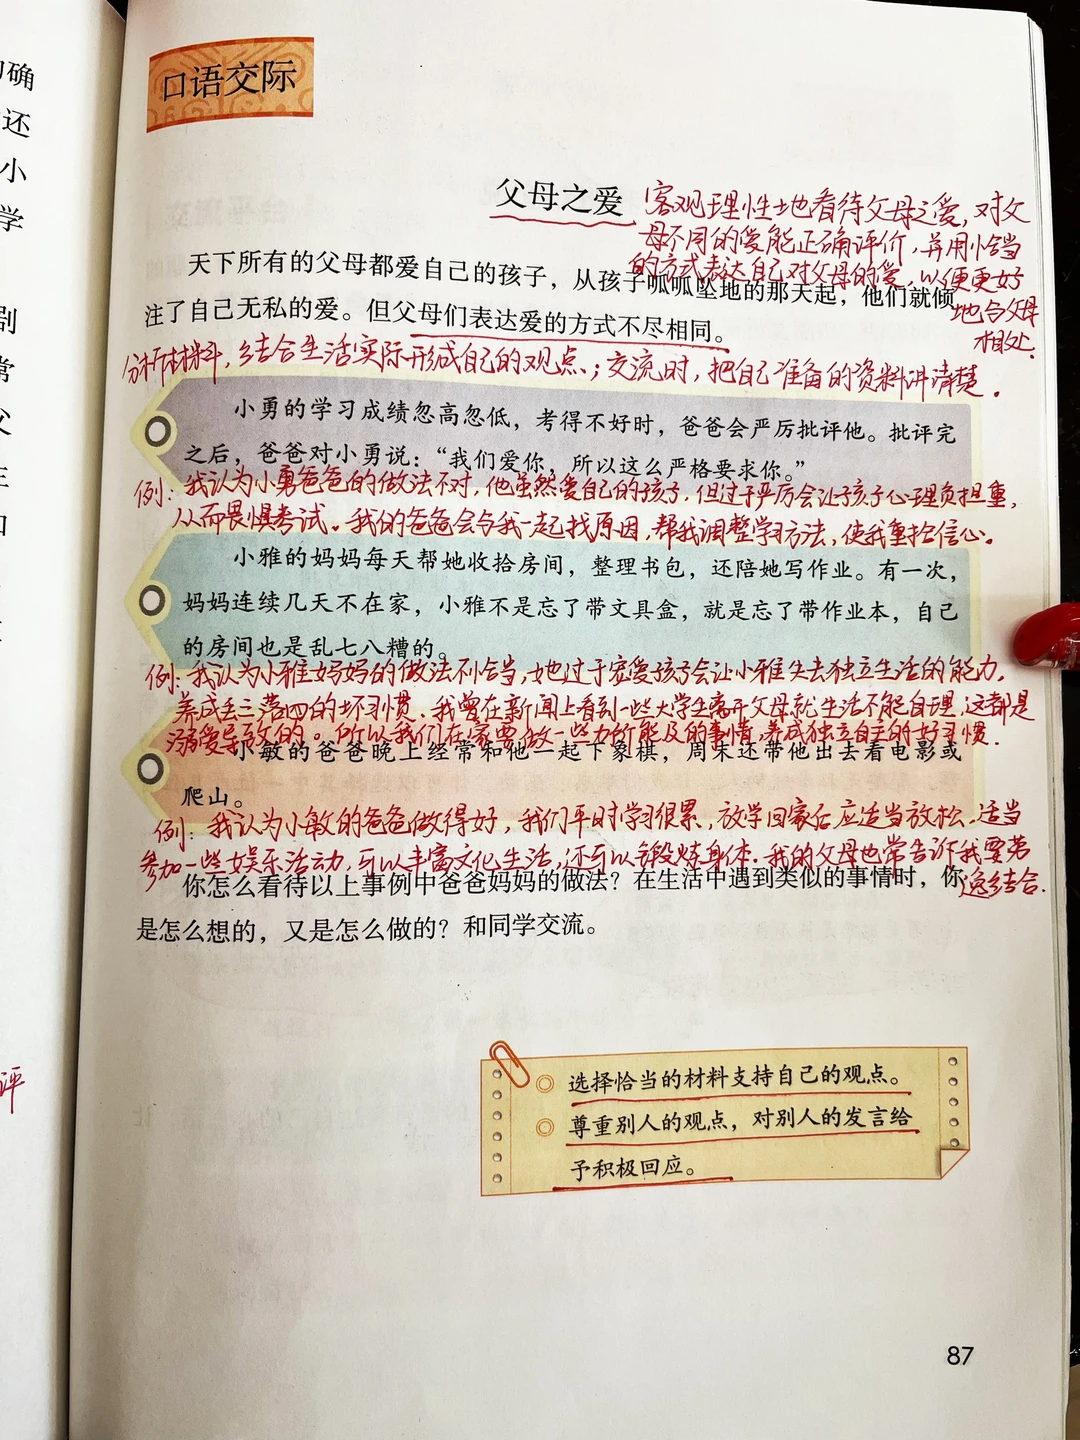 确
还
小
学
剧
常
父
评
口语交际
父母之爱
客观理性地看待父母之爱，对父
母不同的爱能正确评价，并用恰当
的方式表达自己对父母的爱，以便更好
地与父母
相处.
天下所有的父母都爱自己的孩子，从孩子呱呱坠地的那天起，他们就倾
注了自己无私的爱。但父母们表达爱的方式不尽相同。
分析材料，结合生活实际形成自己的观点；交流时，把自己准备的资料讲清楚。
小勇的学习成绩忽高忽低，考得不好时，爸爸会严厉批评他。批评完
之后，爸爸对小勇说：“我们爱你，所以这么严格要求你。”
例：我认为小勇爸爸的做法不对，他虽然爱自己的孩子，但过于严厉会让孩子心理负担重，
从而畏惧考试。我的爸爸会与我一起找原因，帮我调整学习方法，使我重拾信心。
小雅的妈妈每天帮她收拾房间，整理书包，还陪她写作业。有一次，
妈妈连续几天不在家，小雅不是忘了带文具盒，就是忘了带作业本，自己
的房间也是乱七八糟的。
例：我认为小雅妈妈的做法不恰当，她过于宠爱孩子会让小雅失去独立生活的能力，
养成丢三落四的坏习惯。我曾在新闻上看到一些大学生离开父母就生活不能自理，这都是
溺爱导致的。所以我们在家要做一些力所能及的事情，养成独立自主的好习惯.
小敏的爸爸晚上经常和他一起下象棋，周末还带他出去看电影或
爬山。
例：我认为小敏的爸爸做得好，我们平时学习很累，放学回家后应适当放松，适当
参加一些娱乐活动，可以丰富文化生活，还可以锻炼身体.我的父母也常告诉我要劳
逸结合.
你怎么看待以上事例中爸爸妈妈的做法？在生活中遇到类似的事情时，你
是怎么想的，又是怎么做的？和同学交流。
选择恰当的材料支持自己的观点。
尊重别人的观点，对别人的发言给
予积极回应。
87